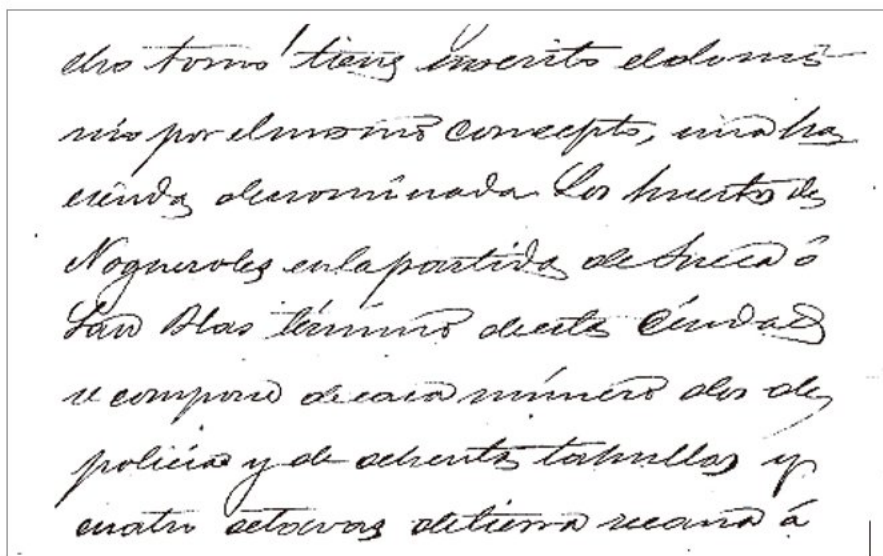 dho tomo tiene inscrito el domi
nio por el mismo concepto, una ha
cienda denominada Los huertos de
Nogueroles en la partida de Sueca ó
San Blas término de esta Ciudad
se compone de casa número dos de
policía y de ochenta tahullas y
cuatro octavas de tierra secana á